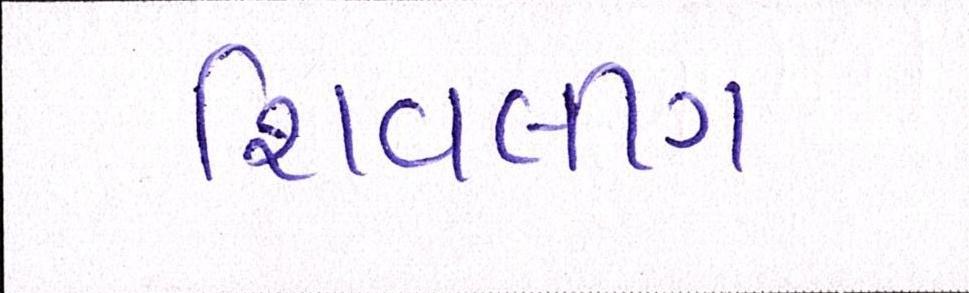 શિવલીગ